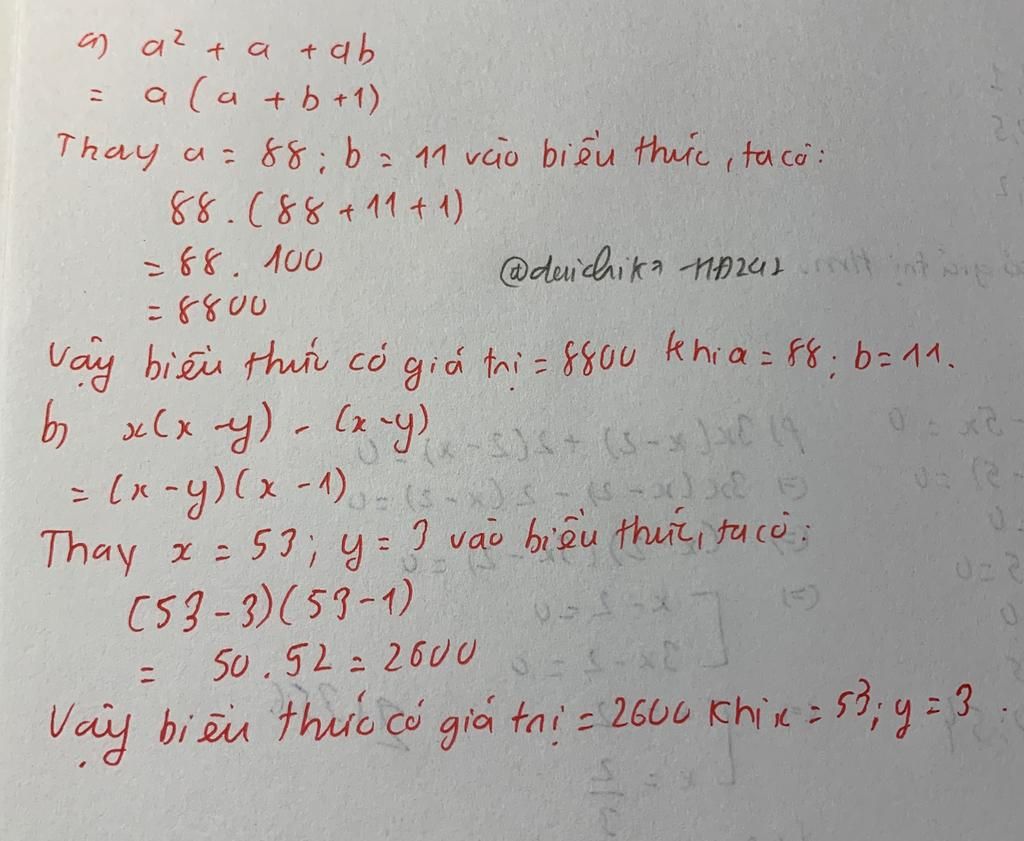 a) a² + a + ab
= a ( a + b + 1)
Thay a = 88 ; b = 11 vào biểu thức , ta có :
88 . ( 88 + 11 + 1)
= 88 . 100
= 8800
Vậy biểu thức có giá trị = 8800 khi a = 88 ; b = 11 .
b) x(x - y) - (x - y)
= (x - y)(x - 1)
Thay x = 53 ; y = 3 vào biểu thức, ta có :
(53 - 3)(53 - 1)
= 50 . 52 = 2600
Vậy biểu thức có giá trị = 2600 khi x = 53; y = 3 .